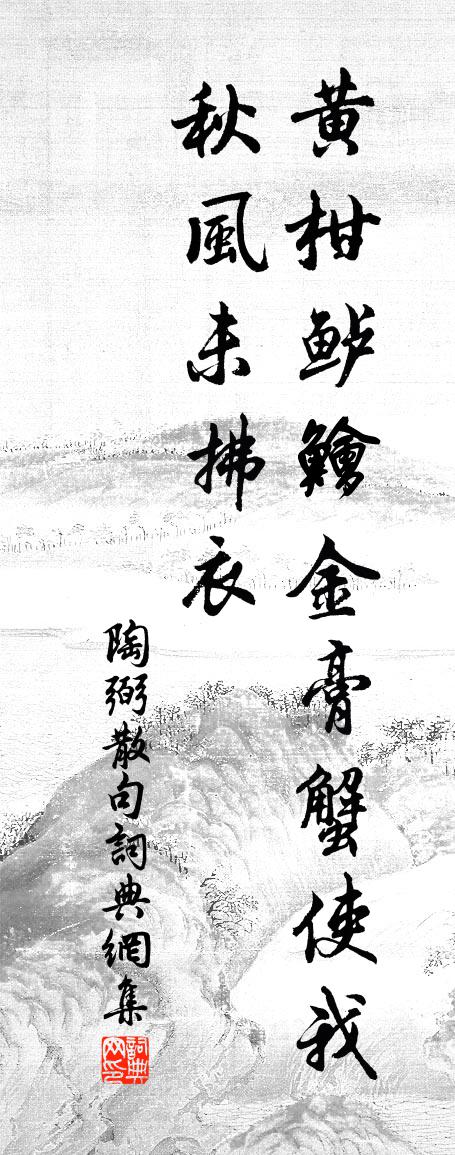 黃柑鲈鱠金膏蟹使我
秋風未拂衣
陶弼散句詞典網集
詞典網印